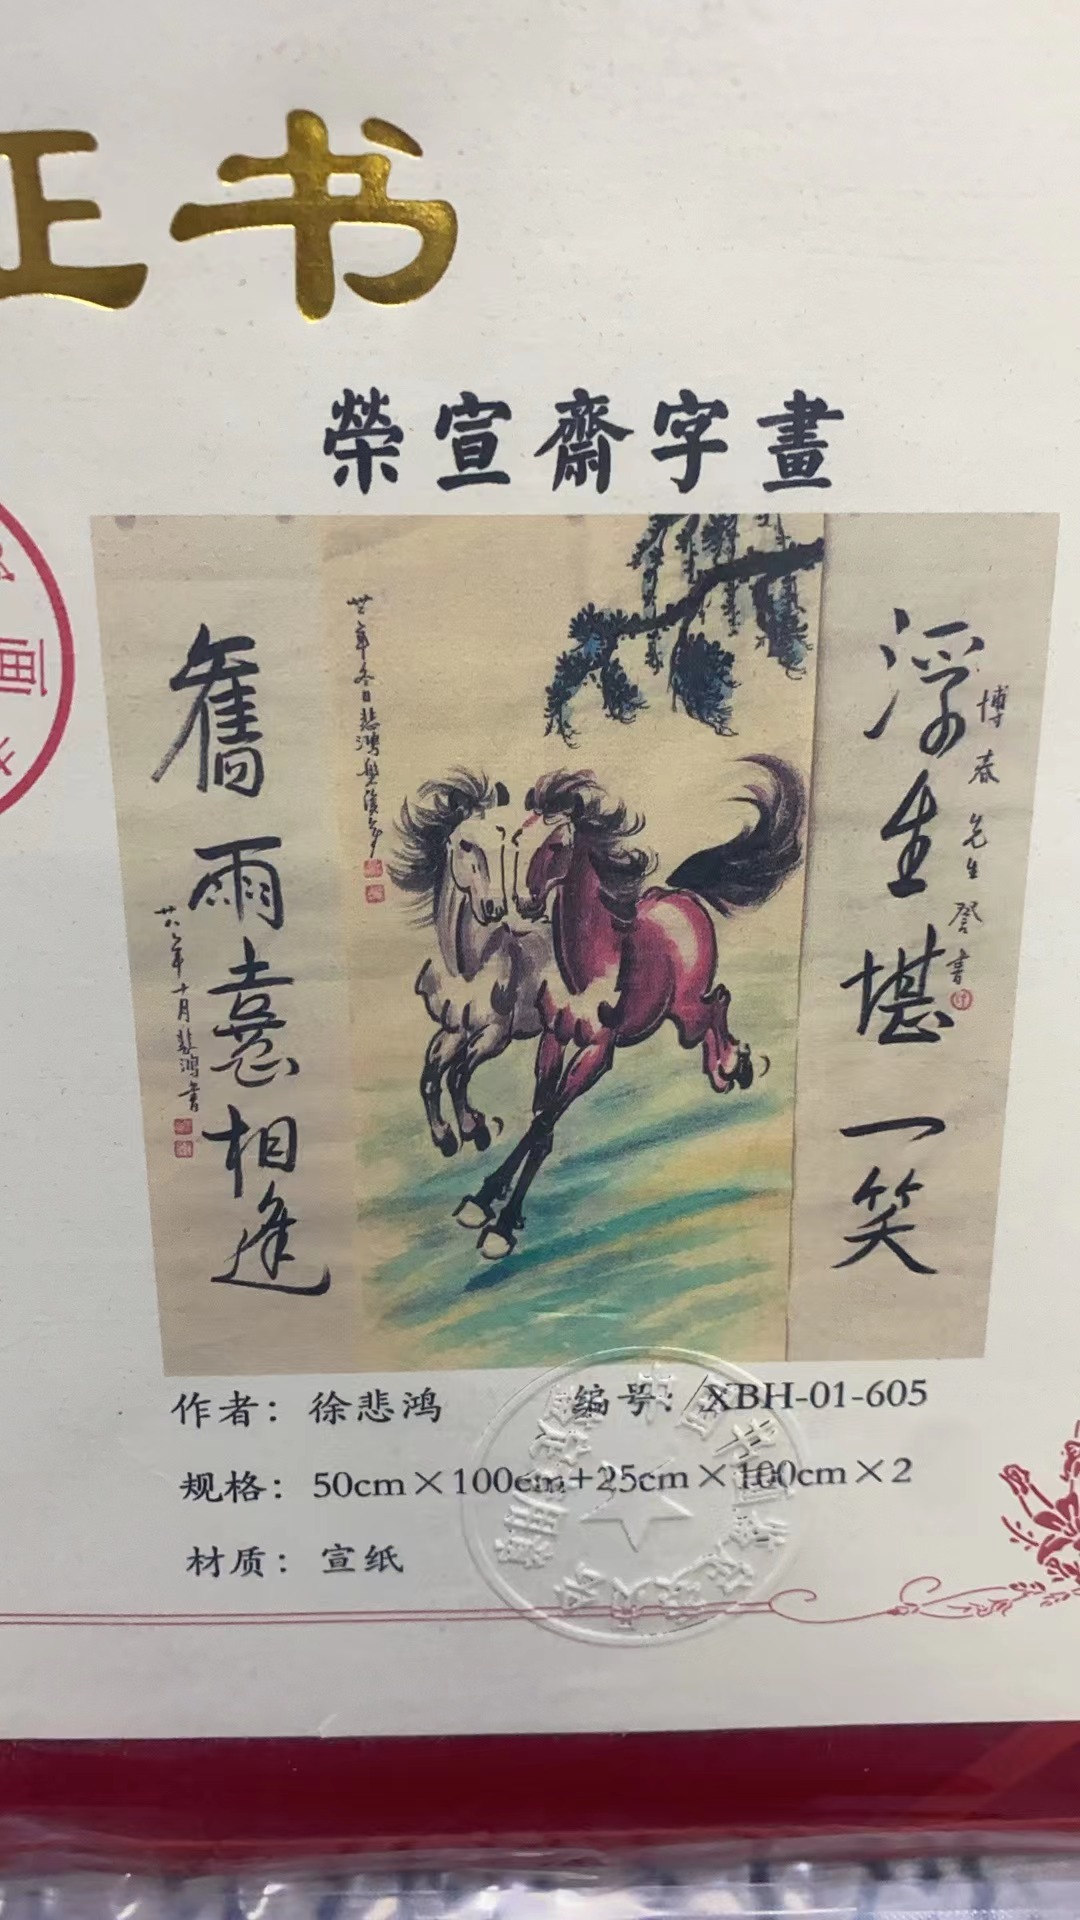 证书
榮宣齋字畫
浮生堪一笑
博春先生督書
舊雨喜相逢
廿八年十月悲鴻書
作者：徐悲鸿
编号：XBH-01-605
规格：50cm×100cm+25cm×100cm×2
材质：宣纸